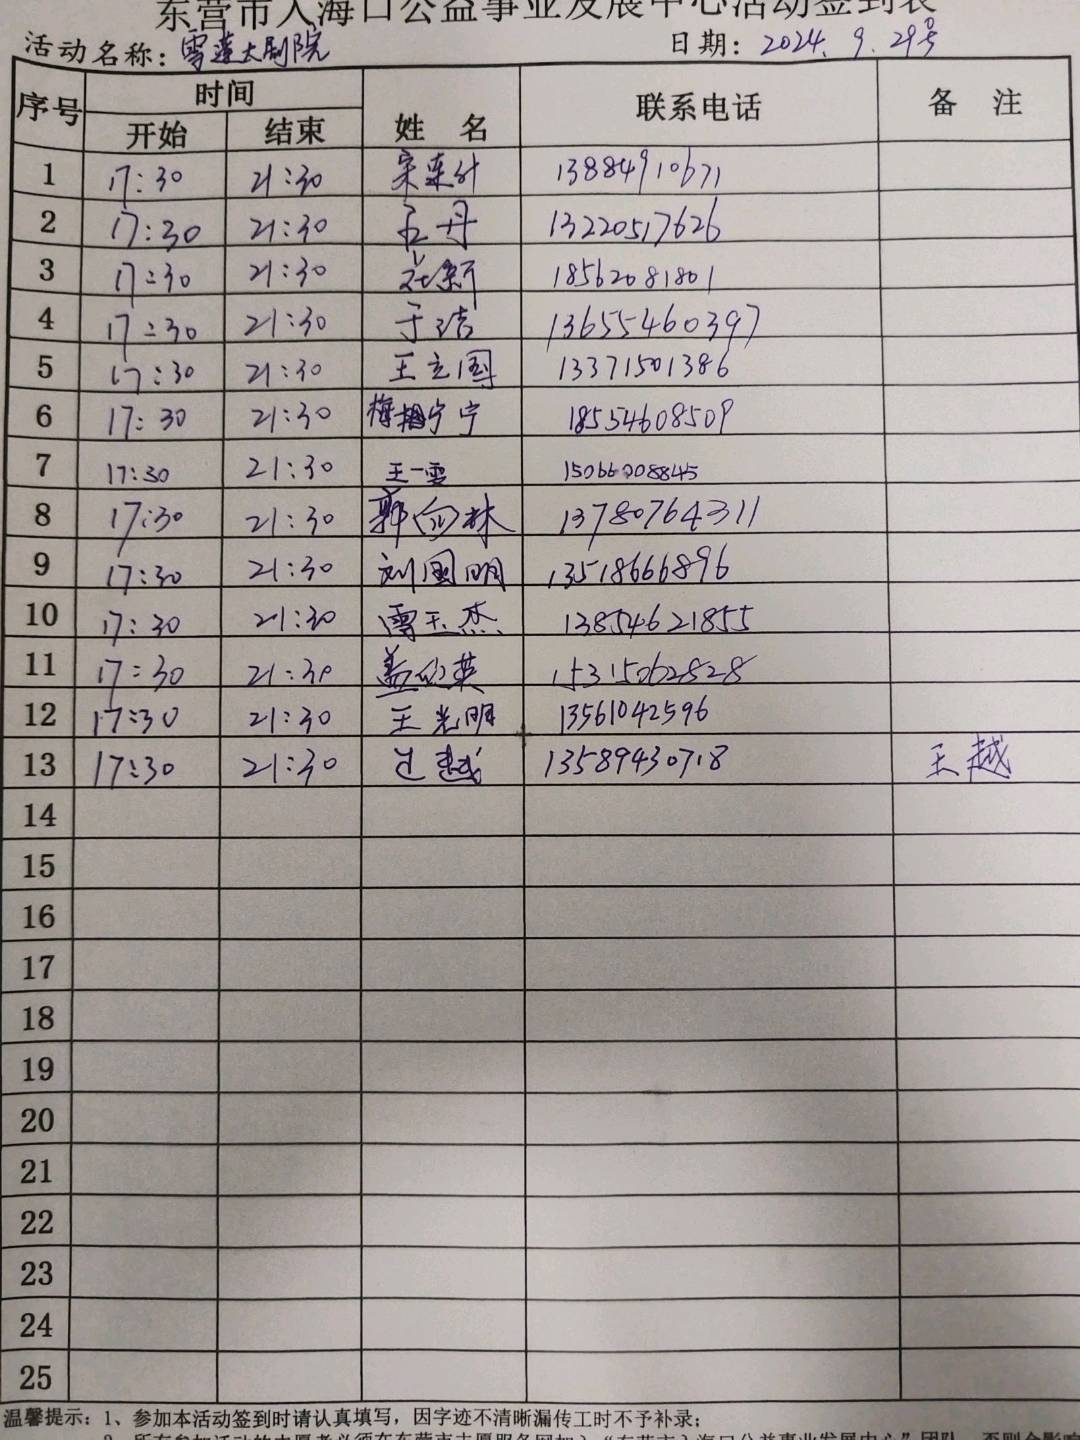 东营市入海口公益事业发展中心活动签到表
活动名称：雪莲大剧院 日期：2024.9.29号
序号 时间 姓名 联系电话 备注
开始 结束
1 17:30 21:30 宋连针 13884910671
2 17:30 21:30 王丹 13220517626
3 17:30 21:30 18562081801
4 17:30 21:30 于洁 13655460397
5 17:30 21:30 王立国 13371501386
6 17:30 21:30 梅宁宁 18554608509
7 17:30 21:30 王一雪 15066008845
8 17:30 21:30 郭向林 13780764311
9 17:30 21:30 刘国明 13518666896
10 17:30 21:30 雷玉杰 13854621855
11 17:30 21:30 盖俊英 15315062828
12 17:30 21:30 王光明 13561042596
13 17:30 21:30 王越 13589430718 王越
14
15
16
17
18
19
20
21
22
23
24
25
温馨提示：1、参加本活动签到时请认真填写，因字迹不清晰漏传工时不予补录；